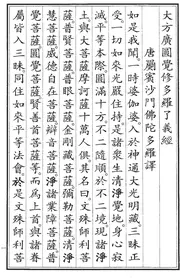 大方廣圓覺修多羅了義經
唐罽賓沙門佛陀多羅譯
如是我聞一時婆伽婆入於神通大光明藏三昧正
受一切如來光嚴住持是諸眾生清淨覺地身心寂
滅平等本際圓滿十方不二隨順於不二境現諸淨
土與大菩薩摩訶薩十萬人俱其名曰文殊師利菩
薩普賢菩薩普眼菩薩金剛藏菩薩彌勒菩薩清淨
慧菩薩威德自在菩薩辯音菩薩淨諸業障菩薩普
覺菩薩圓覺菩薩賢善首菩薩等而為上首與諸眷
屬皆入三昧同住如來平等法會於是文殊師利菩